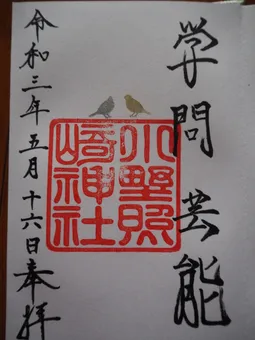 学問 芸能
小野照
崎神社
令和三年五月十六日 奉拝